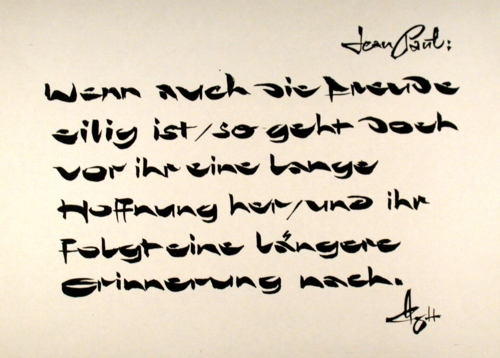 Jean Paul:
Wenn auch die Freude
eilig ist/so geht doch
vor ihr eine lange
Hoffnung her/und ihr
folgt eine längere
Erinnerung nach.